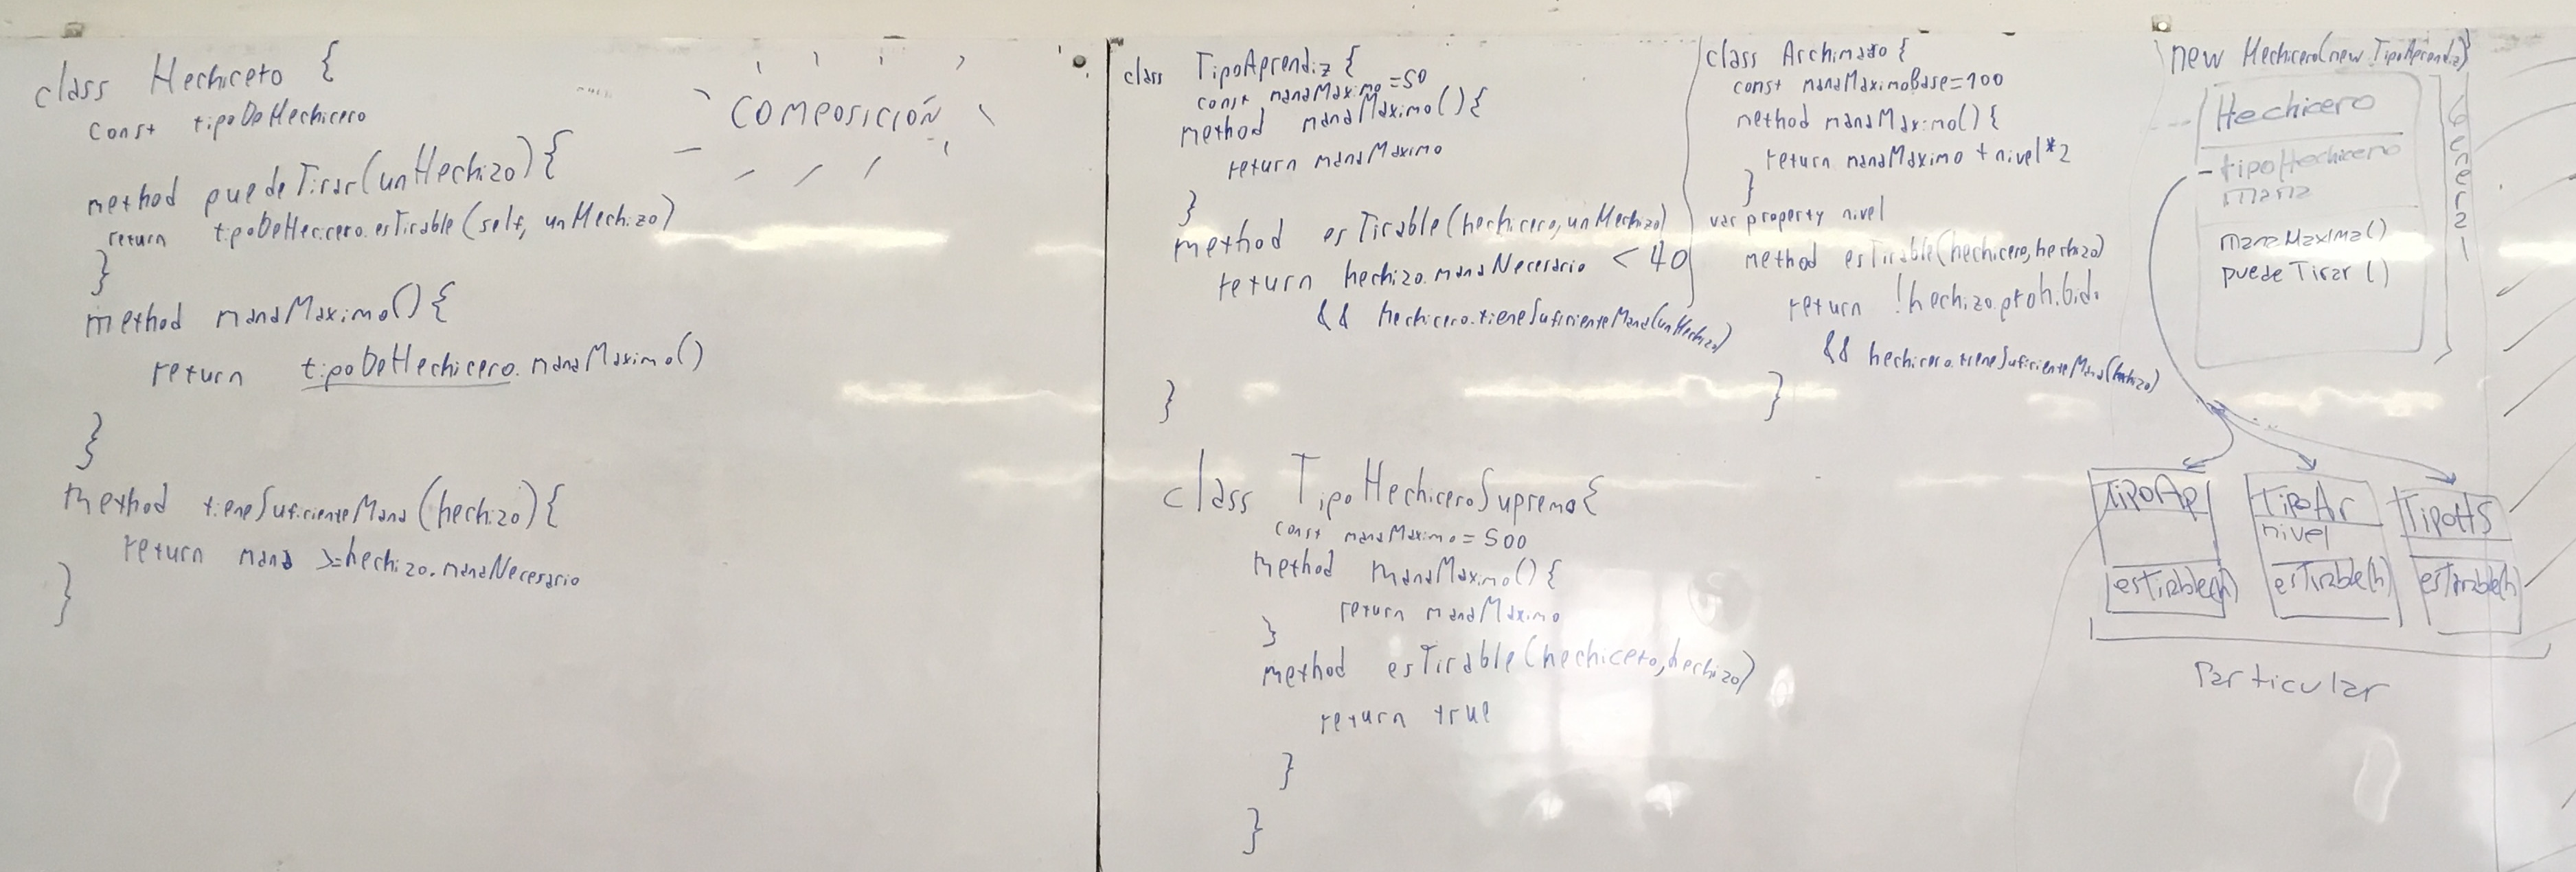 class Hechicero {
const tipoDeHechicero
method puedeTirar(unHechizo){
return tipoDeHechicero.esTirable(self, unHechizo)
}
method manaMaximo(){
return tipoDeHechicero.manaMaximo()
}
method tieneSuficienteMana(hechizo){
return mana >=hechizo.manaNecesario
}
COMPOSICIÓN
class TipoAprendiz {
const manaMaximo=50
method manaMaximo(){
return manaMaximo
}
method esTirable(hechicero,unHechizo)
return hechizo.manaNecesario < 40
&& hechicero.tieneSuficienteMana(unHechizo)
}
class TipoHechiceroSupremo{
const manaMaximo=500
method manaMaximo(){
return manaMaximo
}
method esTirable(hechicero,hechizo)
return true
}
}
class Archimago {
const manaMaximoBase=100
method manaMaximo(){
return manaMaximo + nivel*2
}
var property nivel
method esTirable(hechicero,hechizo)
return !hechizo.prohibido
&& hechicero.tieneSuficienteMana(hechizo)
}
new Hechicero(new TipoAprendiz)
Hechicero
- tipoHechicero
mana
manaMaxima()
puedeTirar()
General
TipoAp
esTirable(h)
TipoAr
nivel
esTirable(h)
TipoHS
esTirable(h)
Particular